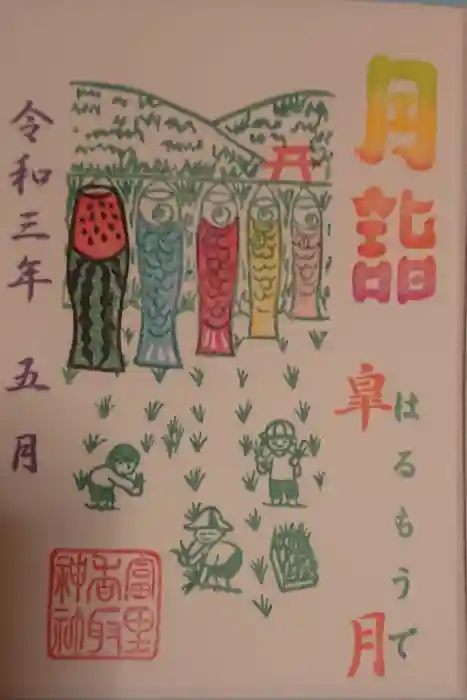 月詣
はるもうで
皐月
令和三年 五月
富里
香取
神社